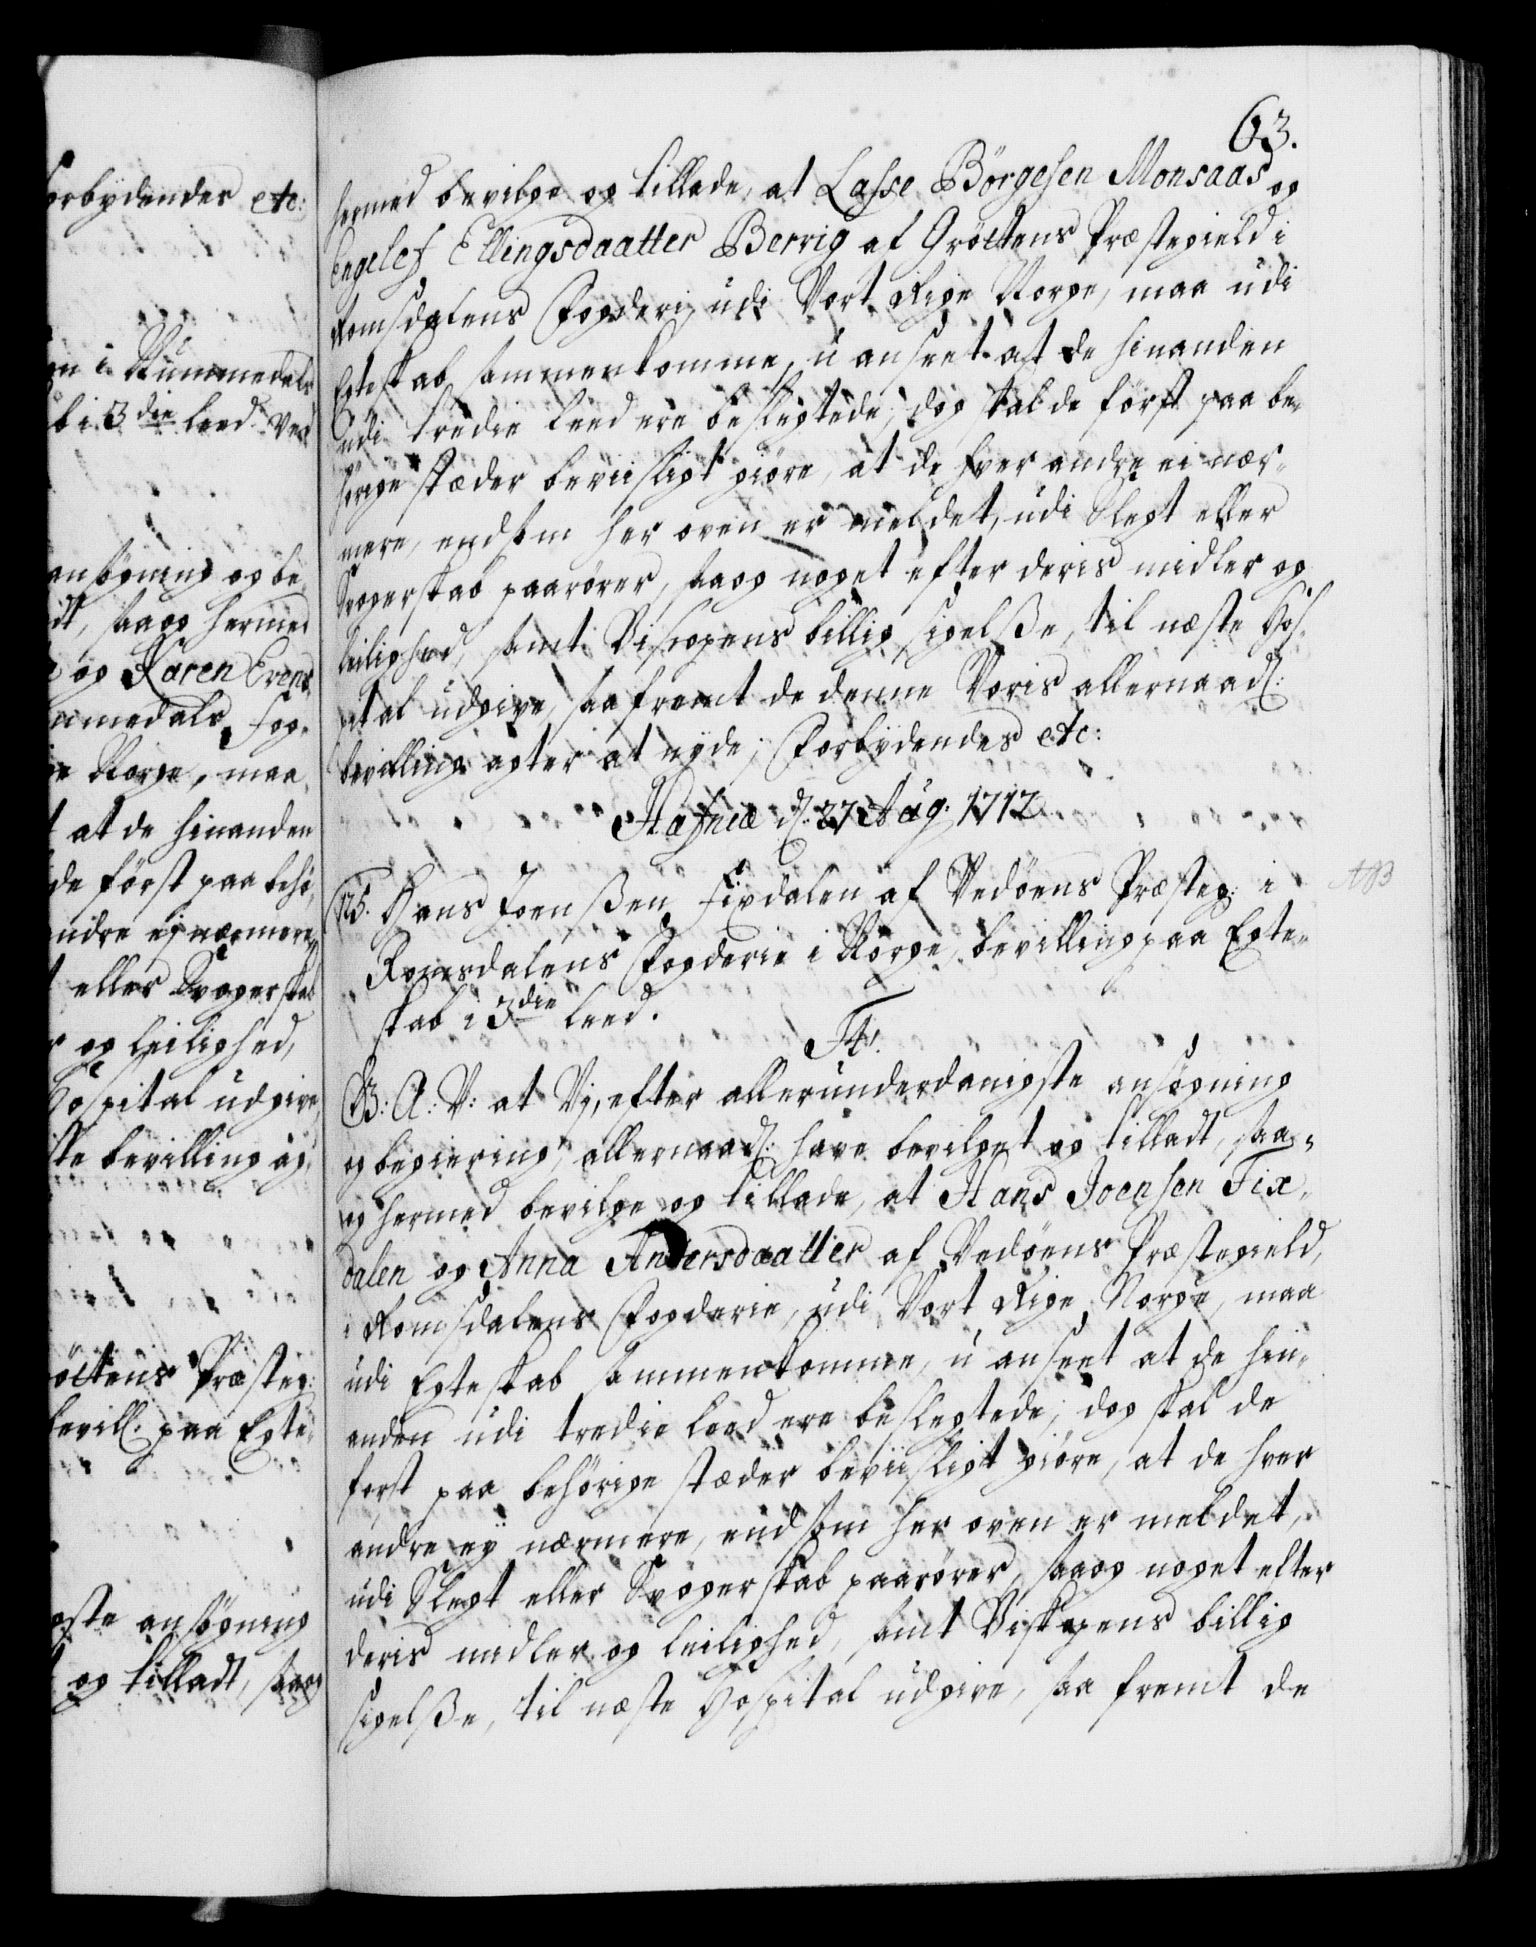 orbydendes etc:
en i Nummedals
b i 3die leed. Ved
ansøgning og be
dt, saa og hermed
e og Karen Erens
ummedals Fog-
ge Norge, maa
t at de hinanden
de først paa behø
andre ej nærmere
t eller Svogerskab
r og leilighed,
Hospital udgive,
ste bevilling ag
öttens Præsteg:
bevill. paa Egte-
gste ansøgning
t og tilladt, saa og
63.
hermed bevilge og tillade, at Lasse Börgesen Monsaas og
Engelef Ellingsdaatter Berrig af Gröttens Præstegield i
Romsdalens Fogderi, udi Vort Rige Norge, maa udi
Egteskab sammenkomme, u anseet at de hinanden
udi tredie leed ere beslegtede; dog skal de først paa be-
hörige stæder beviisligt giøre, at de hver andre ei nær-
mere, end som her oven er meldet, udi Slegt eller
Svogerskab paarører, saa og noget efter deris midler og
leilighed, samt Biscopens billig sigelsse, til næste Hos-
pital udgive, saa fremt de denne Voris allernaad:
bevilling agter at nyde; Forbydendes etc:
Hafniæ d: 27 Aug: 1712
125. Hans Joenssen Fixdalen af Vedöens Præsteg: i
Romsdalens Fogderie i Norge, bevilling paa Egte-
skab i 3die leed.
F4!
G: A: V: at Vj, efter allerunderdanigste ansøgning
og begiering, allernaad: have bevilget og tilladt, saa-
og hermed bevilge og tillade, at Hans Joensen Fix-
dalen og Anna Andersdaatter af Vedöens Præstegield,
i Romsdalens Fogderie, udi Vort Rige Norge, maa
udi Egteskab sammenkomme, u anseet at de hin-
anden udi tredie leed ere beslegtede; dog skal de
først paa behörige stæder beviisligt giöre, at de hver
andre ey nærmere, end som her oven er meldet,
udi Slegt eller Svogerskab paarører, saa og noget efter
deris midler og leilighed, samt Biskopens billig
sigelsse, til næste Hospital udgive, saa fremt de